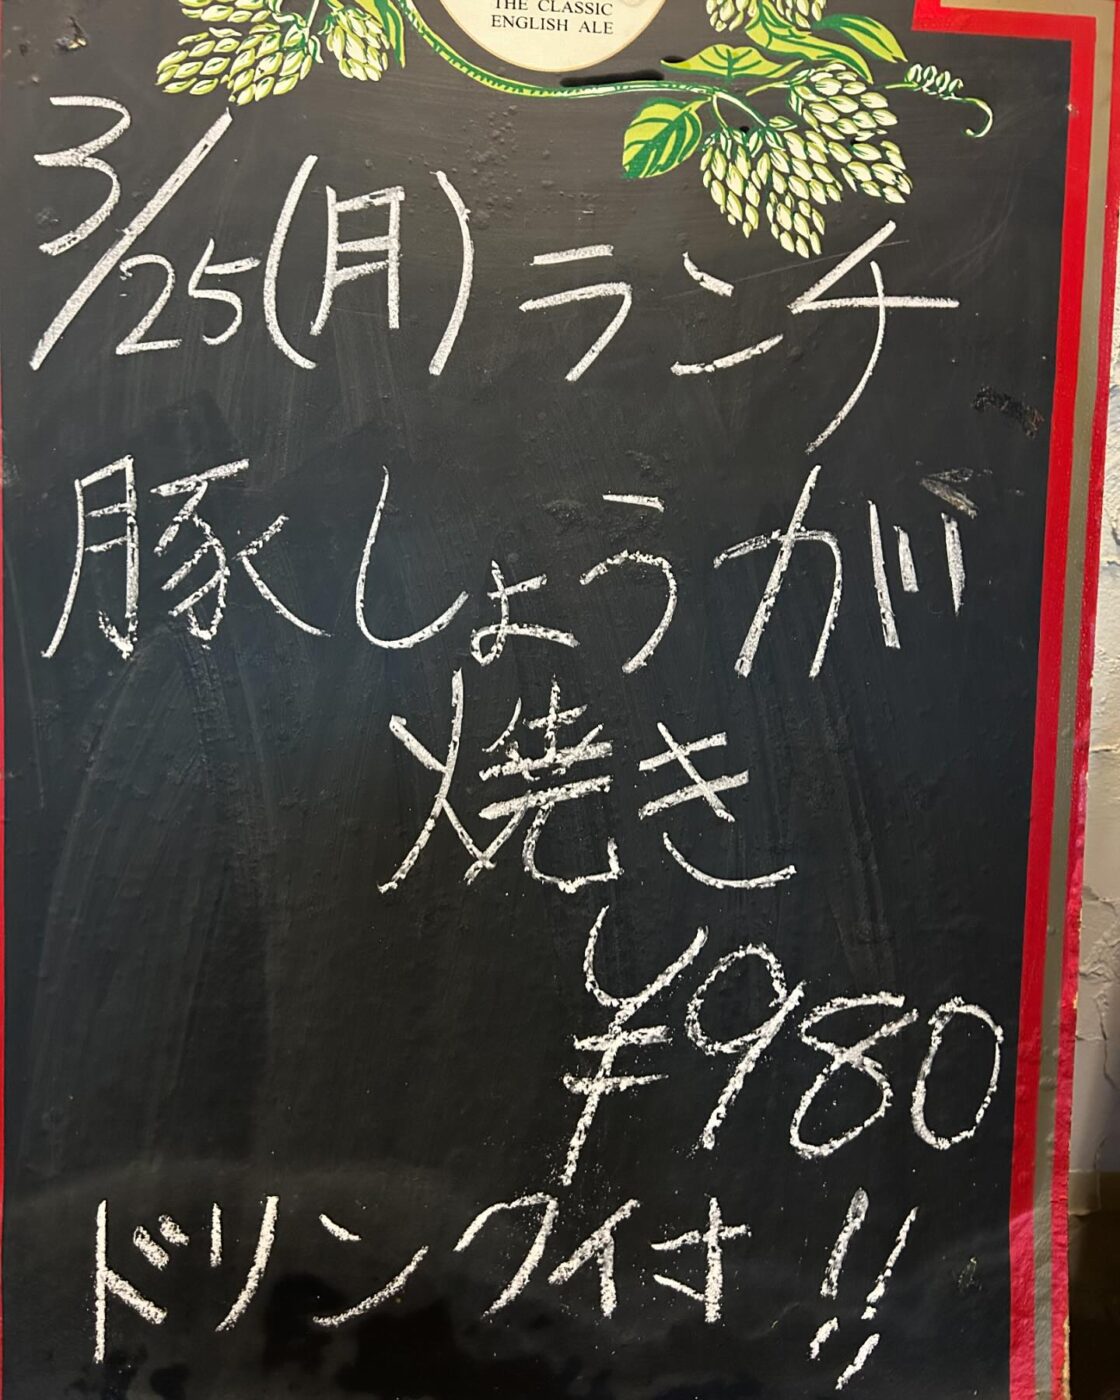 THE CLASSIC
ENGLISH ALE
3/25(月)ランチ
豚しょうが
焼き
¥980
ドリンク付!!